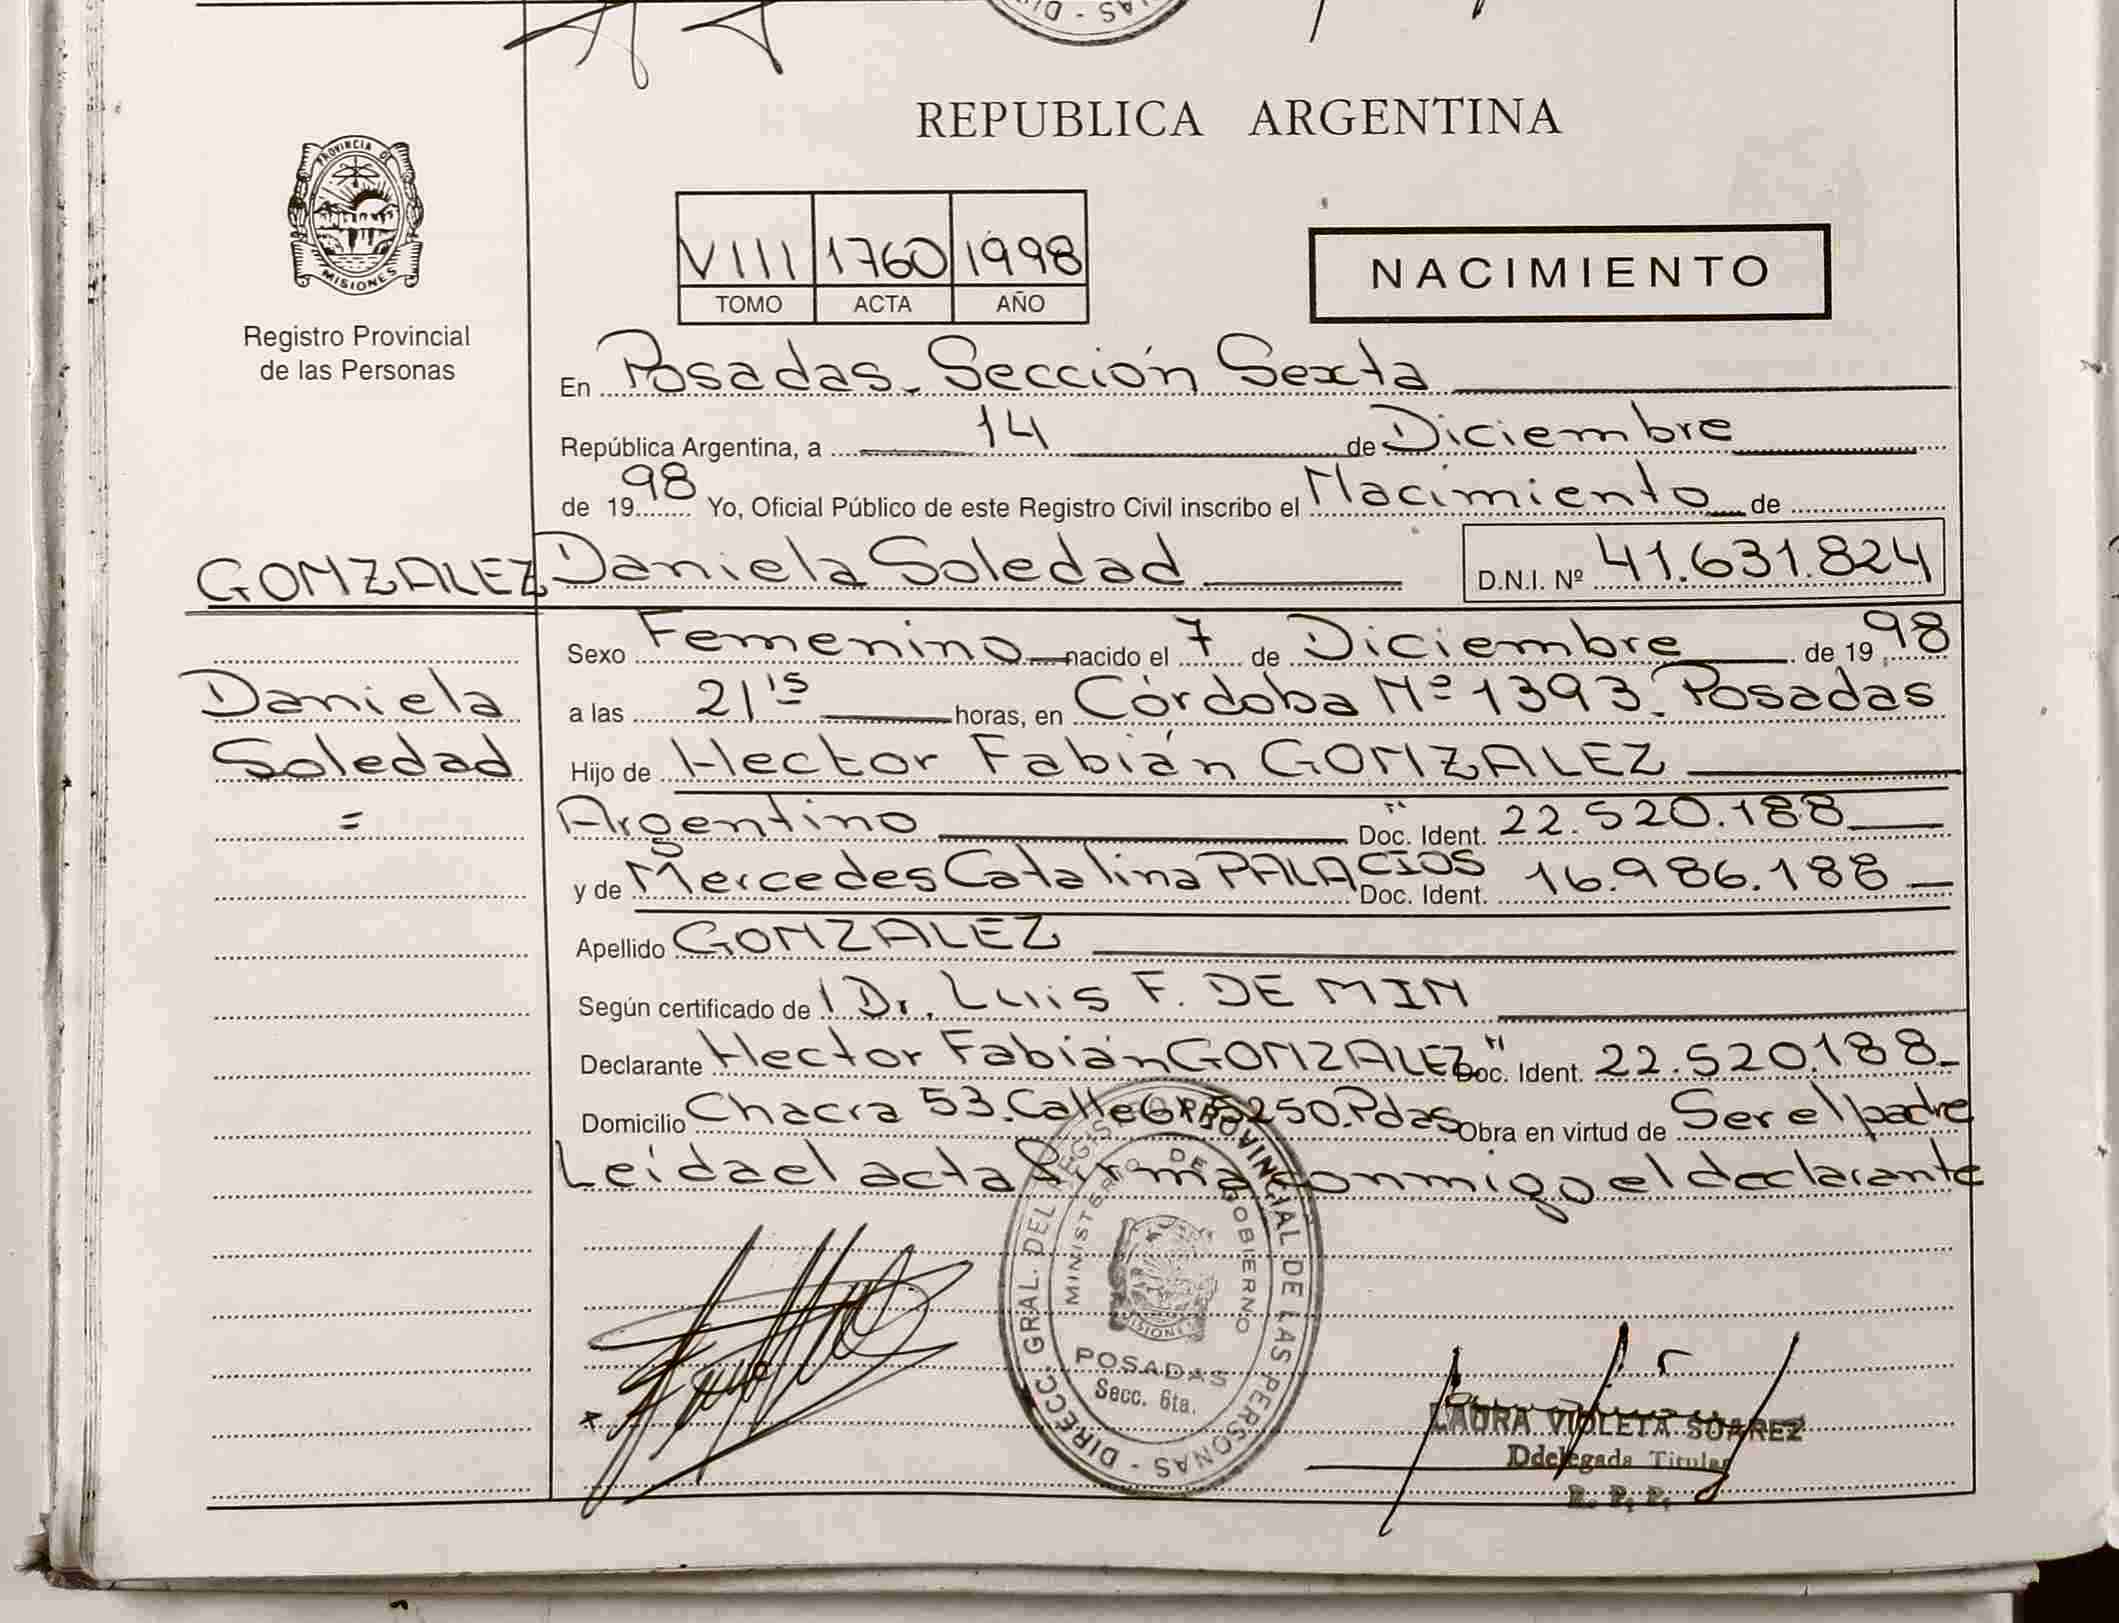 DIAS - SA
REPUBLICA ARGENTINA
PROVINCIA DE
MISIONES
Registro Provincial
de las Personas
VIII 1760 1998
TOMO ACTA AÑO
NACIMIENTO
En Posadas. Sección Sexta
República Argentina, a 14 de Diciembre
de 1998 Yo, Oficial Público de este Registro Civil inscribo el Nacimiento de
GONZALEZ Daniela Soledad D.N.I. Nº 41.631.824
Sexo Femenino nacido el 7 de Diciembre de 1998
Daniela
a las 21,15 horas, en Córdoba Nº 1393. Posadas
Soledad
Hijo de Hector Fabián GONZALEZ
=
Argentino Doc. Ident. 22.520.188
y de Mercedes Catalina PALACIOS Doc. Ident. 16.986.188
Apellido GONZALEZ
Según certificado de Dr. Luis F. DE MIN
Declarante Hector Fabián GONZALEZ Doc. Ident. 22.520.188
Domicilio Chacra 53. Calle 250. Pdas Obra en virtud de Ser el padre
Leida el acta firma conmigo el declarante
DIRECC. GRAL. DEL REGISTRO PROVINCIAL DE LAS PERSONAS -
MINISTERIO DE GOBIERNO
MISIONES
POSADAS
Secc. 6ta.
LAURA VIOLETA SUAREZ
Ddelegada Titular
R. P. P.